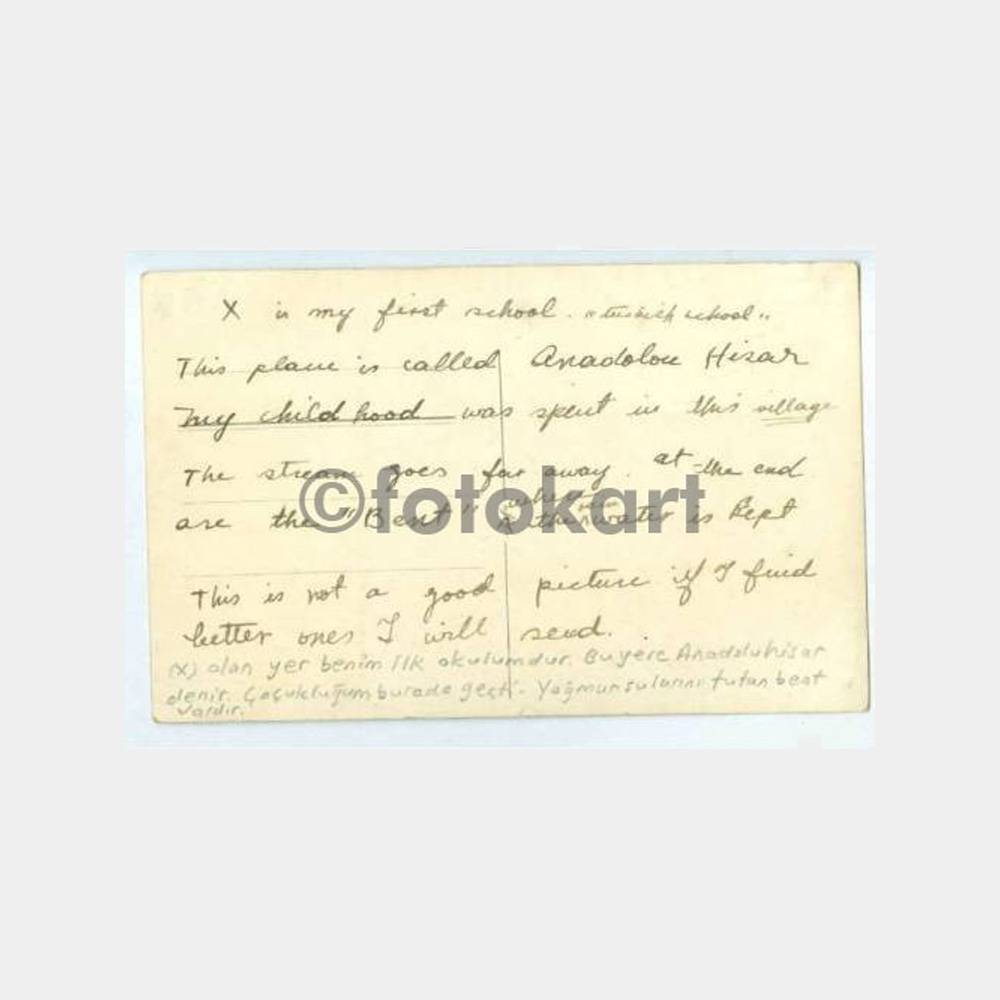 X is my first school. "turkish school"
This place is called Anadolou Hisar
my child hood was spent in this village
The stream goes far away. at the end
are the "Bent" where the water is kept
©fotokart
This is not a good picture if I find
better ones I will send.
(X) olan yer benim ilk okulumdur. Bu yere Anadoluhisar
denir. Çocukluğum burada geçti. Yağmur sularını tutan bent
vardır.